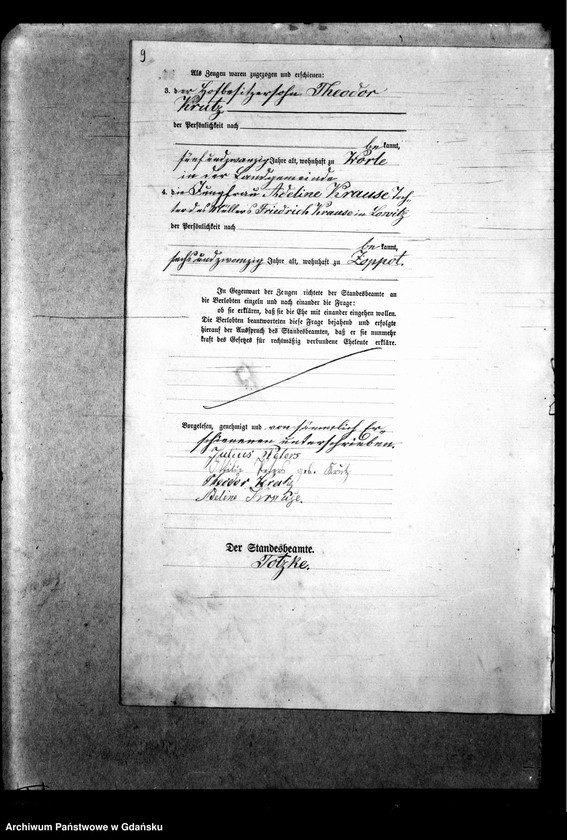 9
Als Zeugen waren zugezogen und erschienen:
3. der Hofbesitzersohn Theodor
Krutz
der Persönlichkeit nach
bekannt,
fünfundzwanzig Jahre alt, wohnhaft zu Körle
in der Landgemeinde
4. die Jungfrau Adeline Krause Toch-
ter des Müllers Friedrich Krause in Lowitz
der Persönlichkeit nach
bekannt,
sechsundzwanzig Jahre alt, wohnhaft zu Zoppot.
In Gegenwart der Zeugen richtete der Standesbeamte an
die Verlobten einzeln und nach einander die Frage:
ob sie erklären, daß sie die Ehe mit einander eingehen wollen.
Die Verlobten beantworteten diese Frage bejahend und erfolgte
hierauf der Ausspruch des Standesbeamten, daß er sie nunmehr
kraft des Gesetzes für rechtmäßig verbundene Eheleute erkläre.
Vorgelesen, genehmigt und von sämmtlich Er-
schienenen unterschrieben.
Julius Peters
Peters geb. Krütz
Theodor Krutz
Adeline Krause.
Der Standesbeamte.
Totzke.
Archiwum Państwowe w Gdańsku